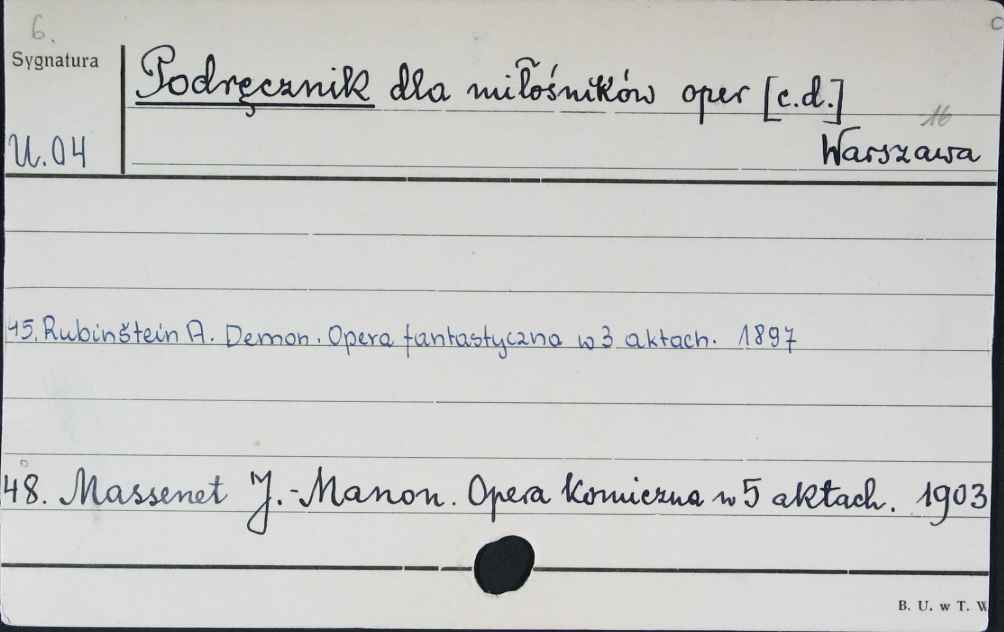 6.
c
Sygnatura
Podręcznik dla miłośników oper [c.d.]
16
U.04
Warszawa
45. Rubinštein A. Demon. Opera fantastyczna w 3 aktach. 1897
48. Massenet J.-Manon. Opera komiczna w 5 aktach. 1903
B. U. w T. W